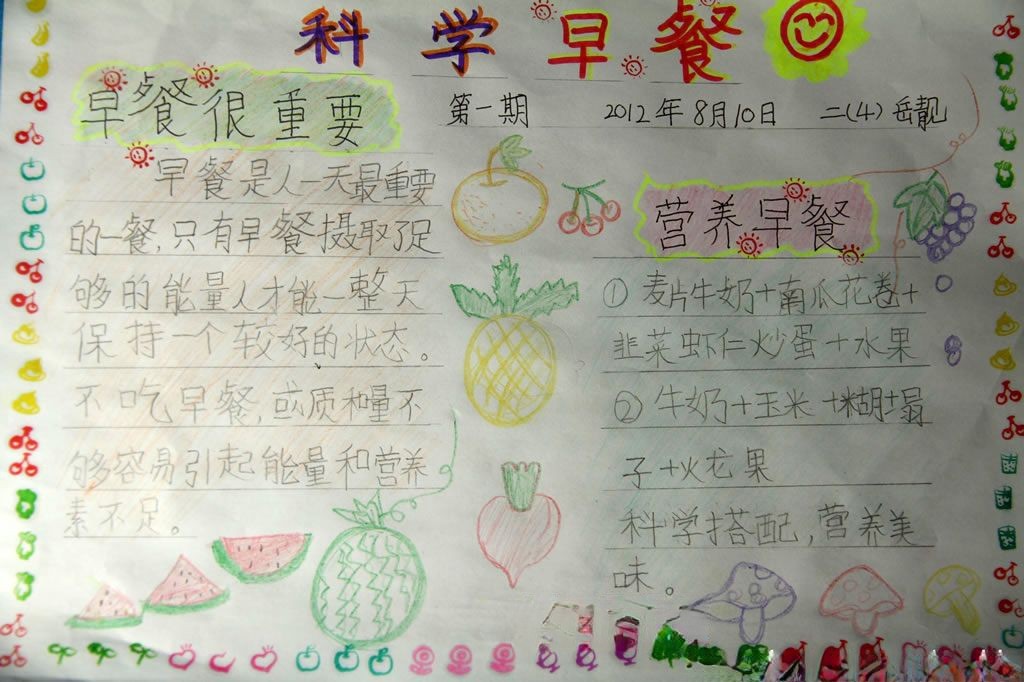 科学早餐
第一期 2012年8月10日 二(4) 岳靓
早餐很重要
早餐是人一天最重要
的一餐,只有早餐摄取了足
够的能量人才能一整天
保持一个较好的状态。
不吃早餐,或质和量不
够容易引起能量和营养
素不足。
营养早餐
①麦片牛奶+南瓜花卷+
韭菜虾仁炒蛋+水果
②牛奶+玉米+糊塌
子+火龙果
科学搭配,营养美
味。